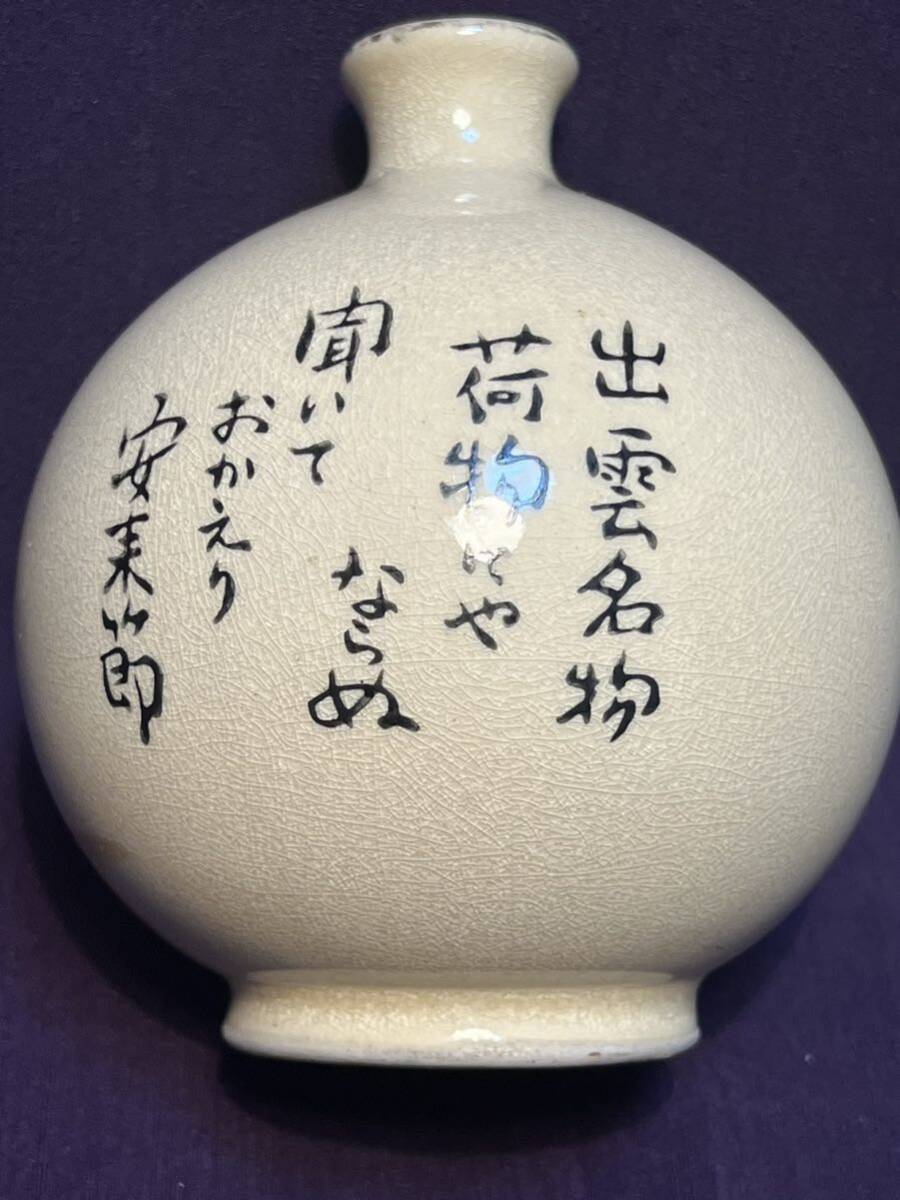 出雲名物
荷物にや
ならぬ
聞いて
おかえり
安来節